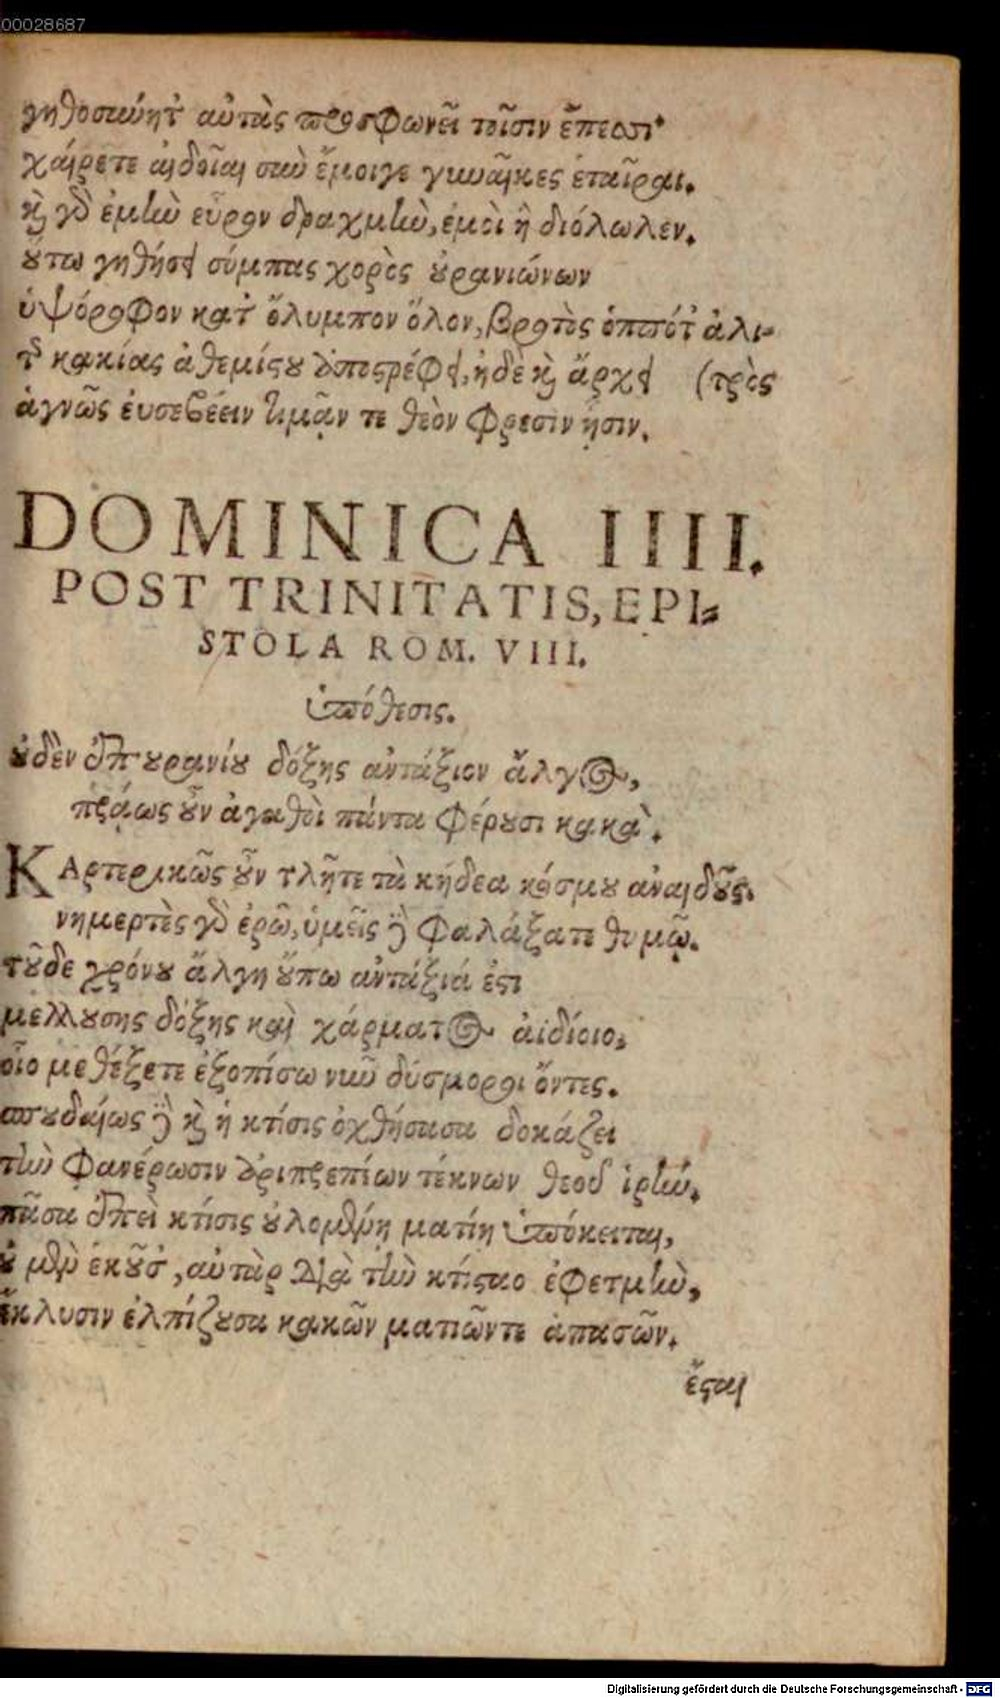 00028687
γηθοσύνητ' αὐτὰς προσφωνεῖ τοῖσιν ἔπεσσι·
χαίρετε αἰδοῖαι σὺν ἔμοιγε γυναῖκες ἑταῖραι.
καὶ γὰρ ἐμὴν εὗρον δραχμὴν, ἐμοὶ ἣ διόλωλεν.
οὕτω γηθήσει σύμπας χορὸς οὐρανιώνων
ὑψόροφον κατ' ὄλυμπον ὅλον, βροτὸς ὁππότ' ἀλι-
τῆς κακίας ἀθεμίστου ἀποστρέφει, ἠδὲ καὶ ἄρχει (τρὸς
ἁγνῶς εὐσεβέειν τιμᾷν τε θεὸν φρεσὶν ᾗσιν.
DOMINICA IIII.
POST TRINITATIS, EPI=
STOLA ROM. VIII.
ὑπόθεσις.
οὐδὲν ἐπουρανίου δόξης ἀντάξιον ἄλγος,
πρᾴως οὖν ἀγαθοὶ πάντα φέρουσι κακά.
ΚΑρτερικῶς οὖν τλῆτε τὰ κήδεα κόσμου ἀναιδοῦς.
νημερτὲς γὰρ ἐρῶ, ὑμεῖς δὲ φαλάξατε θυμῷ.
τοῦδε χρόνου ἄλγη οὔπω ἀντάξιά ἐστι
μελλούσης δόξης καὶ χάρματος ἀϊδίοιο,
οἷο μεθέξετε ἐξοπίσω νῦν δύσμοροι ὄντες.
σπουδαίως δὲ καὶ ἡ κτίσις ὀχθήσασα δοκάζει
τὴν φανέρωσιν ἀριπρεπέων τέκνων θεοῦ ἱρήν.
πᾶσα ἐπεὶ κτίσις οὐλομένη ματίη ὑπόκειται,
οὐ μὲν ἑκοῦσ', αὐτὰρ διὰ τὴν κτίσταο ἐφετμὴν,
ἔκλυσιν ἐλπίζουσα κακῶν ματιῶντε ἁπασῶν.
ἔσται
Digitalisierung gefördert durch die Deutsche Forschungsgemeinschaft - DFG